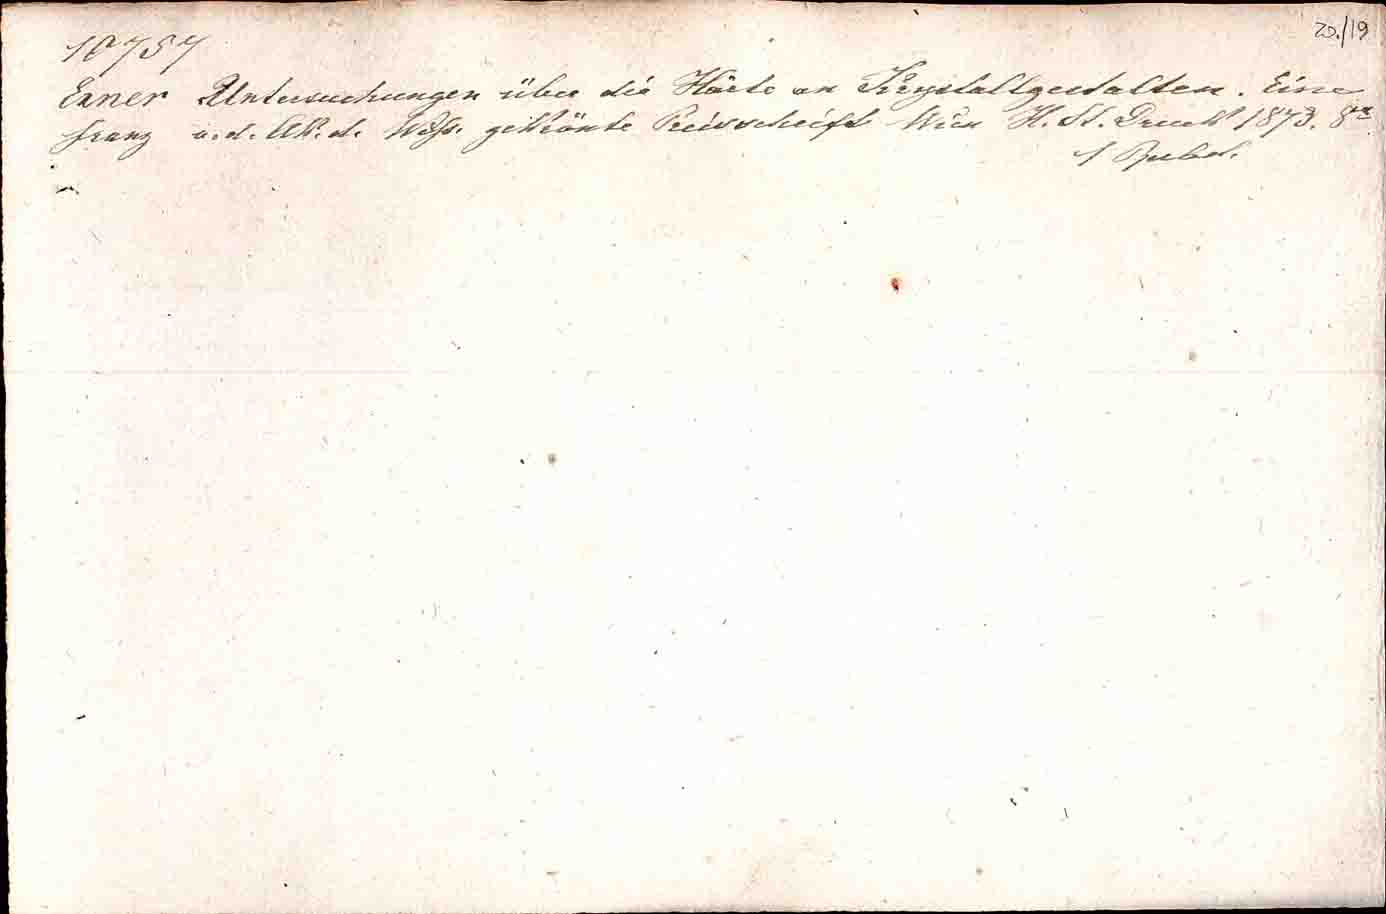 20./19
10757
Exner Untersuchungen über die Härte an Krystallgestalten. Eine
Franz v. d. Ak. d. Wiss. gekrönte Preisschrift Wien H. St. Druck 1873. 8°
1